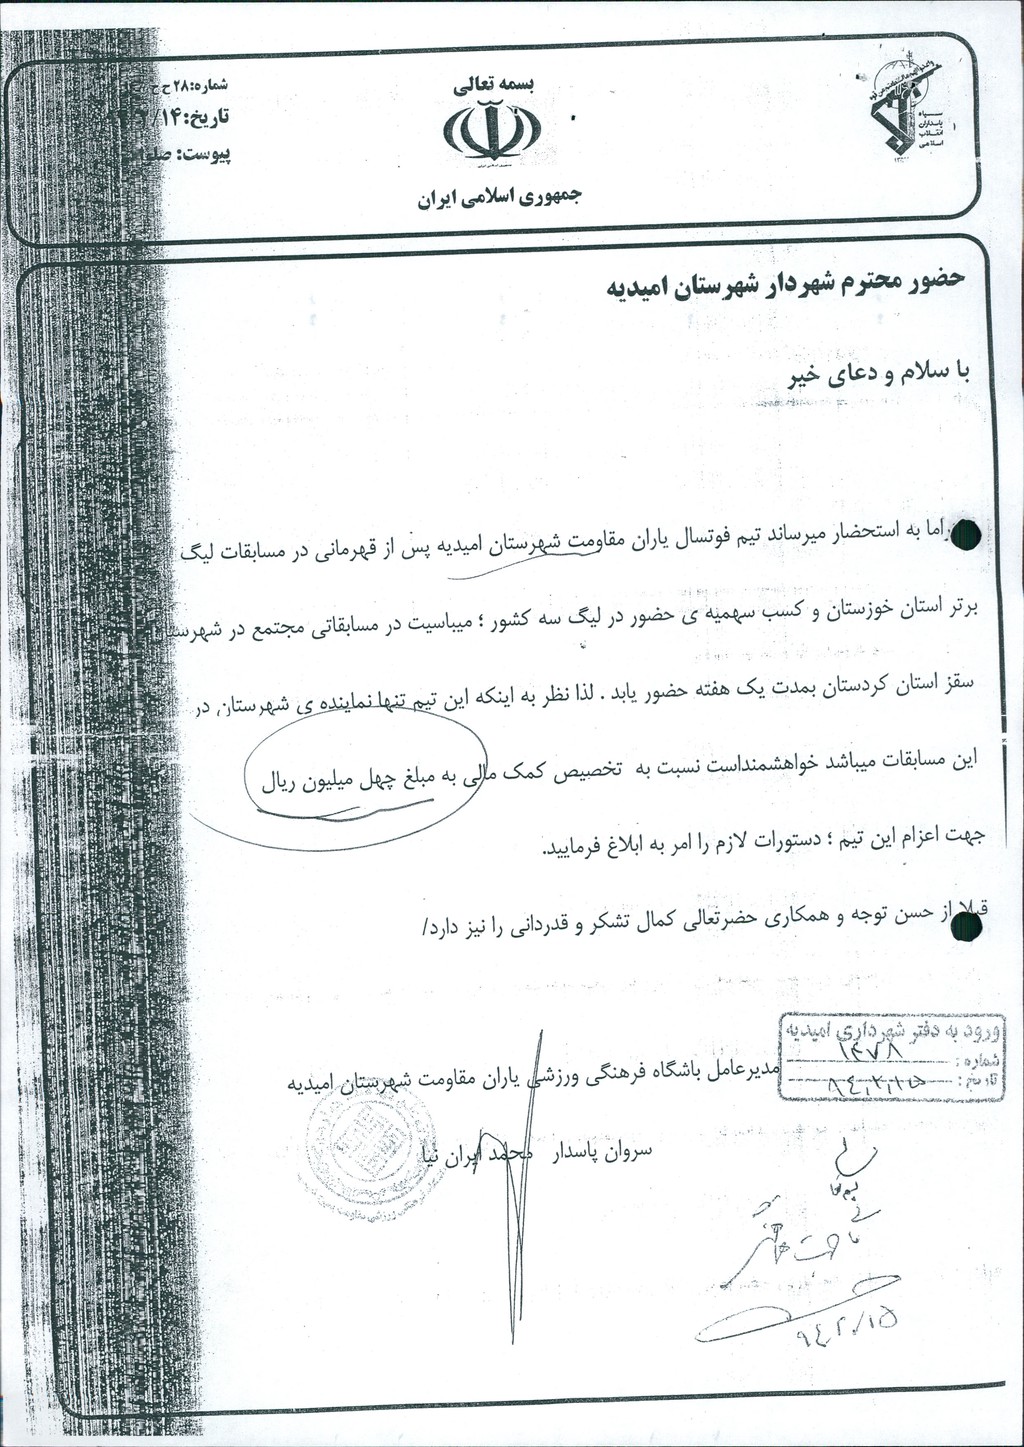 بسمه تعالی
جمهوری اسلامی ایران
سپاه
پاسداران
انقلاب
اسلامی
شماره: ۲۸
تاریخ: ۱۴/
پیوست:
حضور محترم شهردار شهرستان امیدیه
با سلام و دعای خیر
به استحضار میرساند تیم فوتسال یاران مقاومت شهرستان امیدیه پس از قهرمانی در مسابقات لیگ
برتر استان خوزستان و کسب سهمیه ی حضور در لیگ سه کشور ؛ میباسیت در مسابقاتی مجتمع در
سقز استان کردستان بمدت یک هفته حضور یابد . لذا نظر به اینکه این تیم تنها نماینده ی شهرستان در
این مسابقات میباشد خواهشمنداست نسبت به تخصیص کمک مالی به مبلغ چهل میلیون ریال
جهت اعزام این تیم ؛ دستورات لازم را امر به ابلاغ فرمایید.
قبلا از حسن توجه و همکاری حضرتعالی کمال تشکر و قدردانی را نیز دارد/
ورود به دفتر شهرداری امیدیه
شماره : ۱۴۷۸
تاریخ : ۹۴،۲،۱۵
مدیرعامل باشگاه فرهنگی ورزشی یاران مقاومت شهرستان امیدیه
سروان پاسدار محمد ایران نیا
۹۴،۲،۱۵